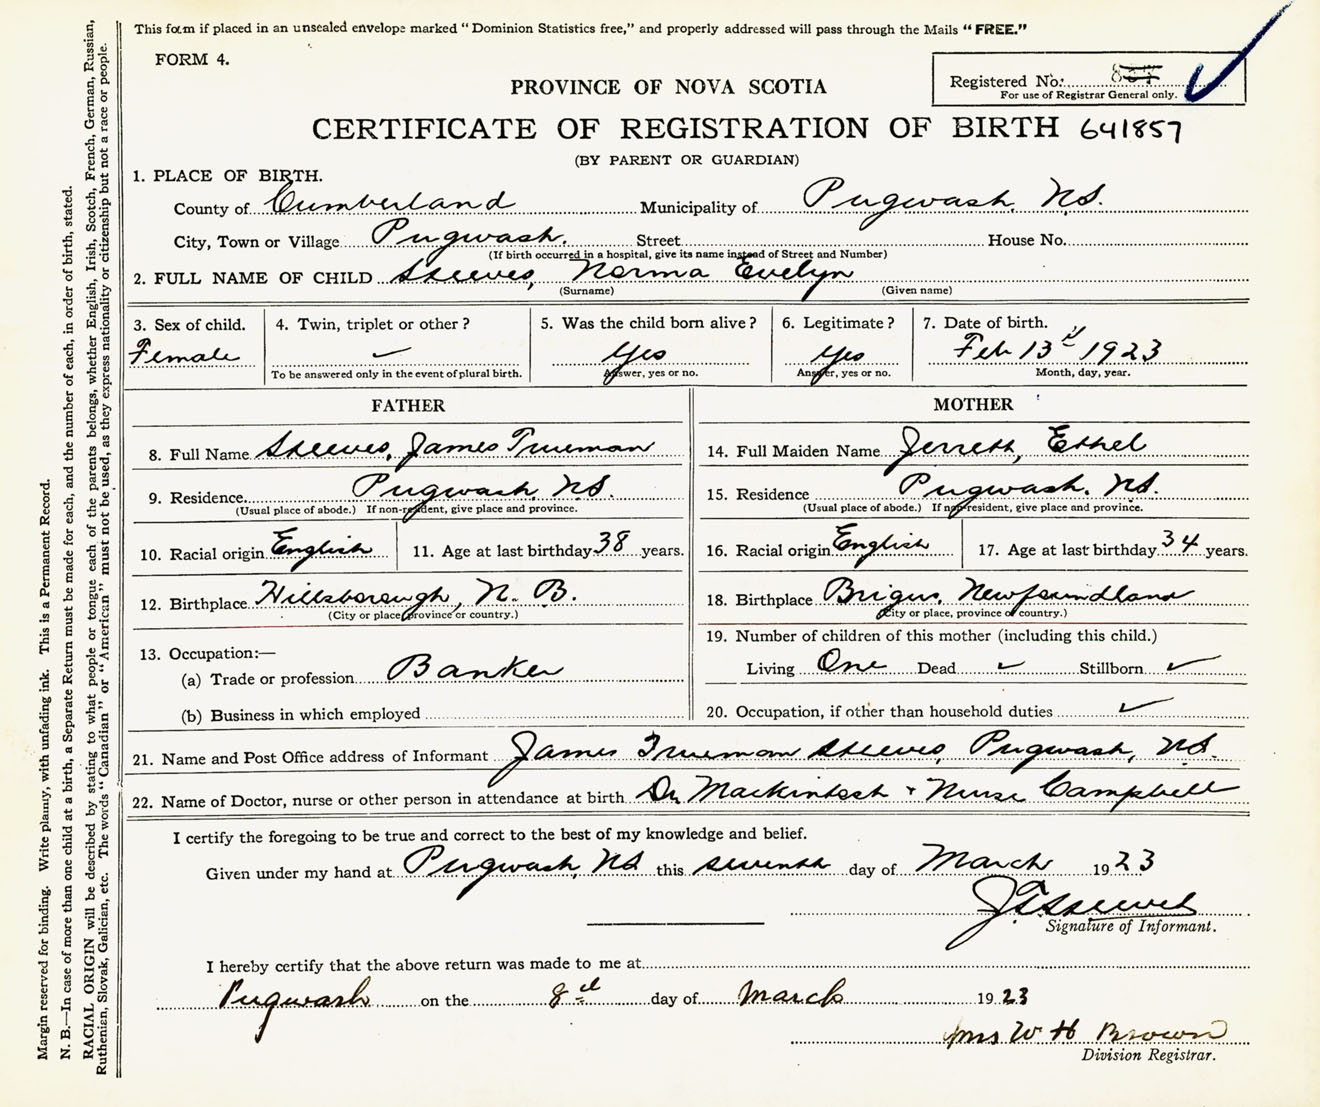 This form if placed in an unsealed envelope marked "Dominion Statistics free," and properly addressed will pass through the Mails "FREE."
FORM 4.
Registered No.
For use of Registrar General only.
PROVINCE OF NOVA SCOTIA
CERTIFICATE OF REGISTRATION OF BIRTH 641857
(BY PARENT OR GUARDIAN)
1. PLACE OF BIRTH.
County of Cumberland Municipality of Pugwash, N.S.
City, Town or Village Pugwash. Street House No.
(If birth occurred in a hospital, give its name instead of Street and Number)
2. FULL NAME OF CHILD Steeves, Norma Evelyn
(Surname) (Given name)
3. Sex of child. 4. Twin, triplet or other? 5. Was the child born alive? 6. Legitimate? 7. Date of birth.
Female ✓ Yes Yes Feb 13th 1923
To be answered only in the event of plural birth. Answer, yes or no. Answer, yes or no. Month, day, year.
FATHER
8. Full Name Steeves, James Trueman
9. Residence Pugwash, N.S.
(Usual place of abode.) If non-resident, give place and province.
10. Racial origin English 11. Age at last birthday 38 years.
12. Birthplace Hillsborough, N. B.
(City or place, province or country.)
13. Occupation:—
(a) Trade or profession Banker
(b) Business in which employed
MOTHER
14. Full Maiden Name Jerrett, Ethel
15. Residence Pugwash, N.S.
(Usual place of abode.) If non-resident, give place and province.
16. Racial origin English 17. Age at last birthday 34 years.
18. Birthplace Brigus, Newfoundland
(City or place, province or country.)
19. Number of children of this mother (including this child.)
Living One Dead ✓ Stillborn ✓
20. Occupation, if other than household duties ✓
21. Name and Post Office address of Informant James Trueman Steeves, Pugwash, N.S.
22. Name of Doctor, nurse or other person in attendance at birth Dr Mackintosh + Nurse Campbell
I certify the foregoing to be true and correct to the best of my knowledge and belief.
Given under my hand at Pugwash, N.S this seventh day of March 1923
J T Steeves
Signature of Informant.
I hereby certify that the above return was made to me at
Pugwash on the 8th day of March 1923
Mrs W H Brown
Division Registrar.
Margin reserved for binding. Write plainly, with unfading ink. This is a Permanent Record.
N. B.—In case of more than one child at a birth, a Separate Return must be made for each, and the number of each, in order of birth, stated.
RACIAL ORIGIN will be described by stating to what people or tongue each of the parents belongs, whether English, Irish, Scotch, French, German, Russian,
Ruthenian, Slovak, Galician, etc. The words "Canadian" or "American" must not be used, as they express nationality or citizenship but not a race or people.